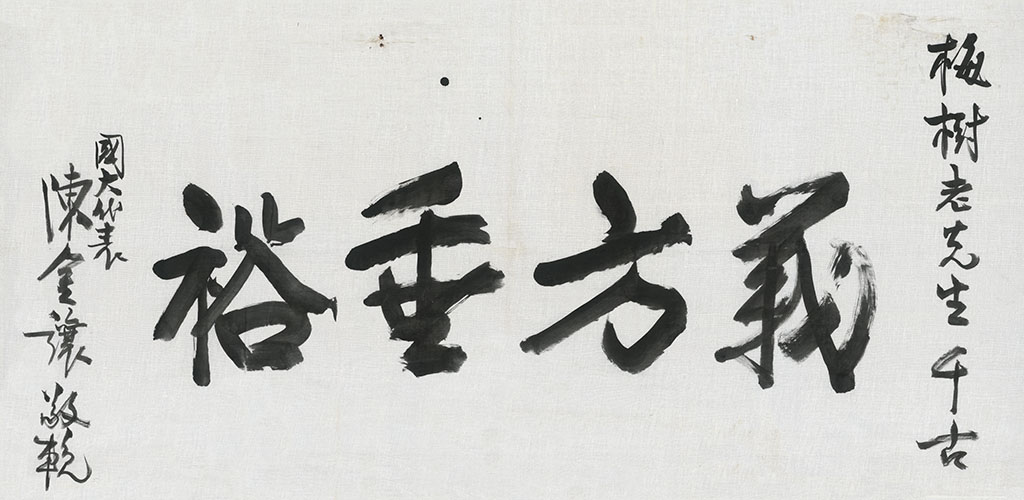 梅樹老先生千古
義方垂裕
國大代表
陳金讓敬輓